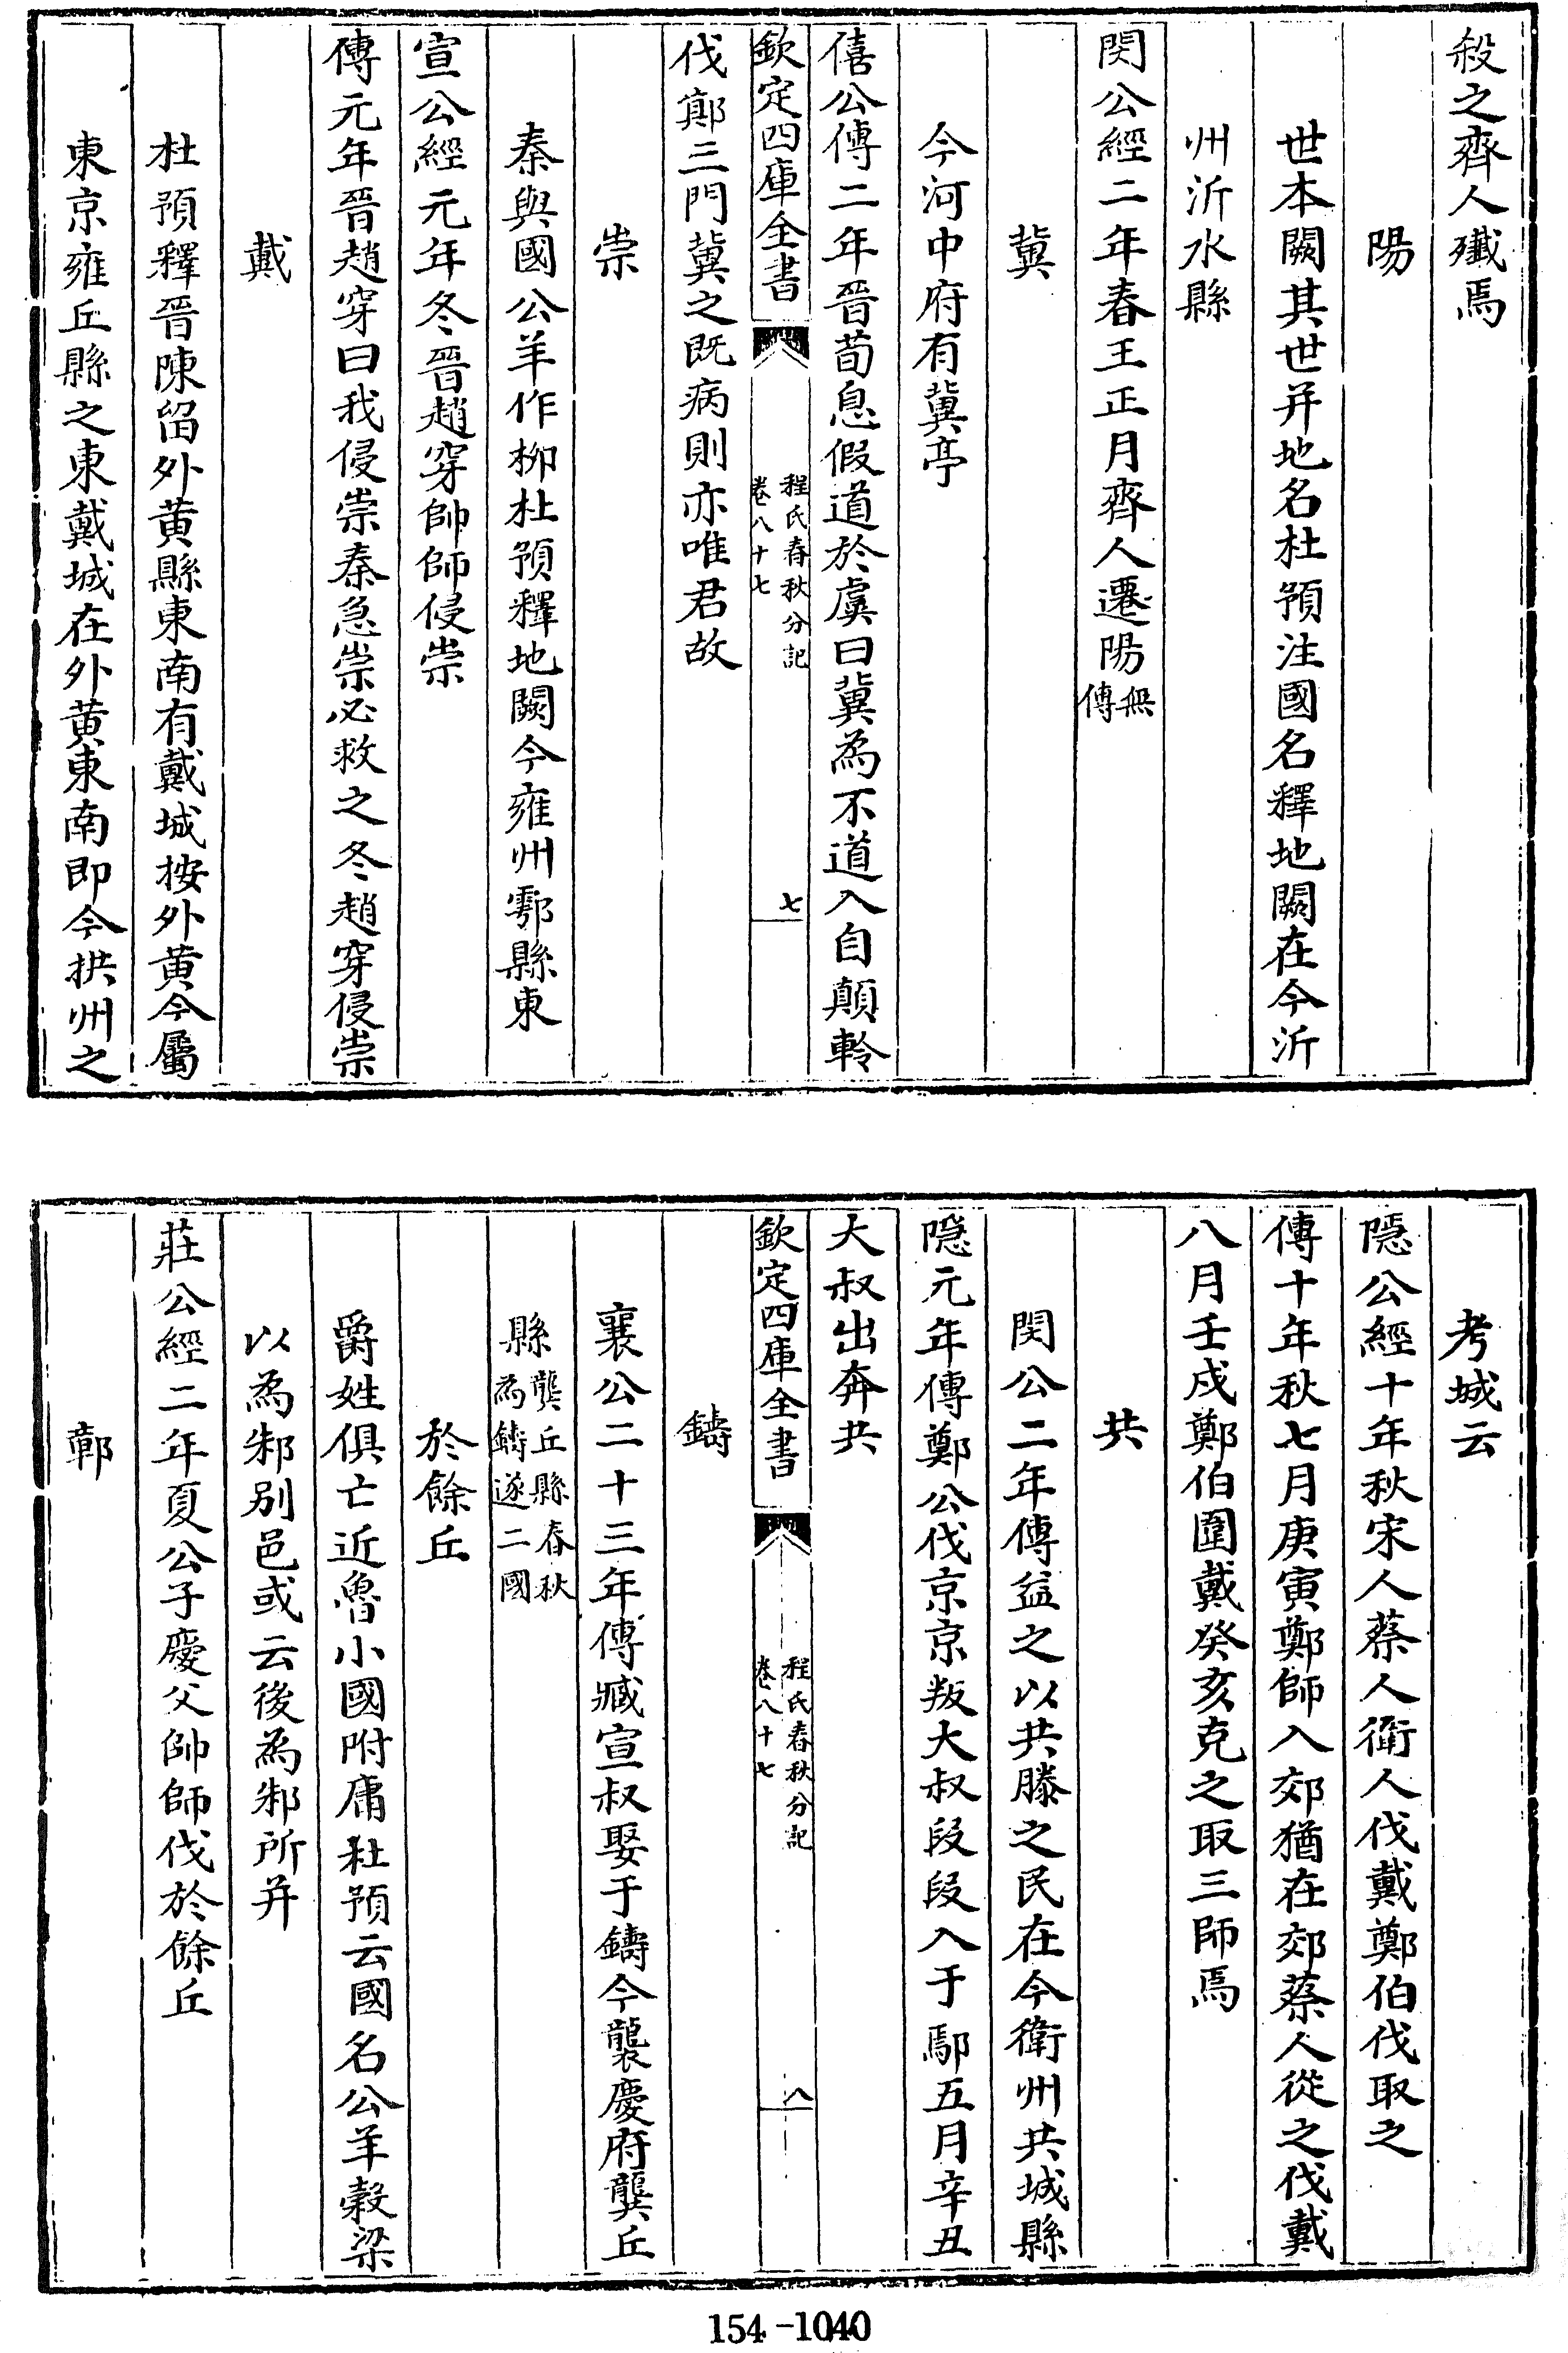 殺之齊人殲焉
陽
世本闕其世并地名杜預注國名釋地闕在今沂
州沂水縣
閔公經二年春王正月齊人遷陽無傳
冀
今河中府有冀亭
僖公傳二年晉荀息假道於虞曰冀為不道入自顛軨
欽定四庫全書
程氏春秋分記
卷八十七
七
伐鄍三門冀之既病則亦唯君故
崇
秦與國公羊作柳杜預釋地闕今雍州鄠縣東
宣公經元年冬晉趙穿帥師侵崇
傳元年晉趙穿曰我侵崇秦急崇必救之冬趙穿侵崇
戴
杜預釋晉陳留外黄縣東南有戴城按外黄今屬
東京雍丘縣之東戴城在外黄東南即今拱州之
考城云
隱公經十年秋宋人蔡人衛人伐戴鄭伯伐取之
傳十年秋七月庚寅鄭師入郊猶在郊蔡人從之伐戴
八月壬戌鄭伯圍戴癸亥克之取三師焉
共
閔公二年傳益之以共滕之民在今衛州共城縣
隱元年傳鄭公伐京京叛大叔段段入于鄢五月辛丑
大叔出奔共
欽定四庫全書
程氏春秋分記
卷八十七
八
鑄
襄公二十三年傳臧宣叔娶于鑄今襲慶府龔丘
縣龔丘縣春秋為鑄遂二國
於餘丘
爵姓俱亡近魯小國附庸杜預云國名公羊穀梁
以為邾别邑或云後為邾所并
莊公經二年夏公子慶父帥師伐於餘丘
鄣
154-1040